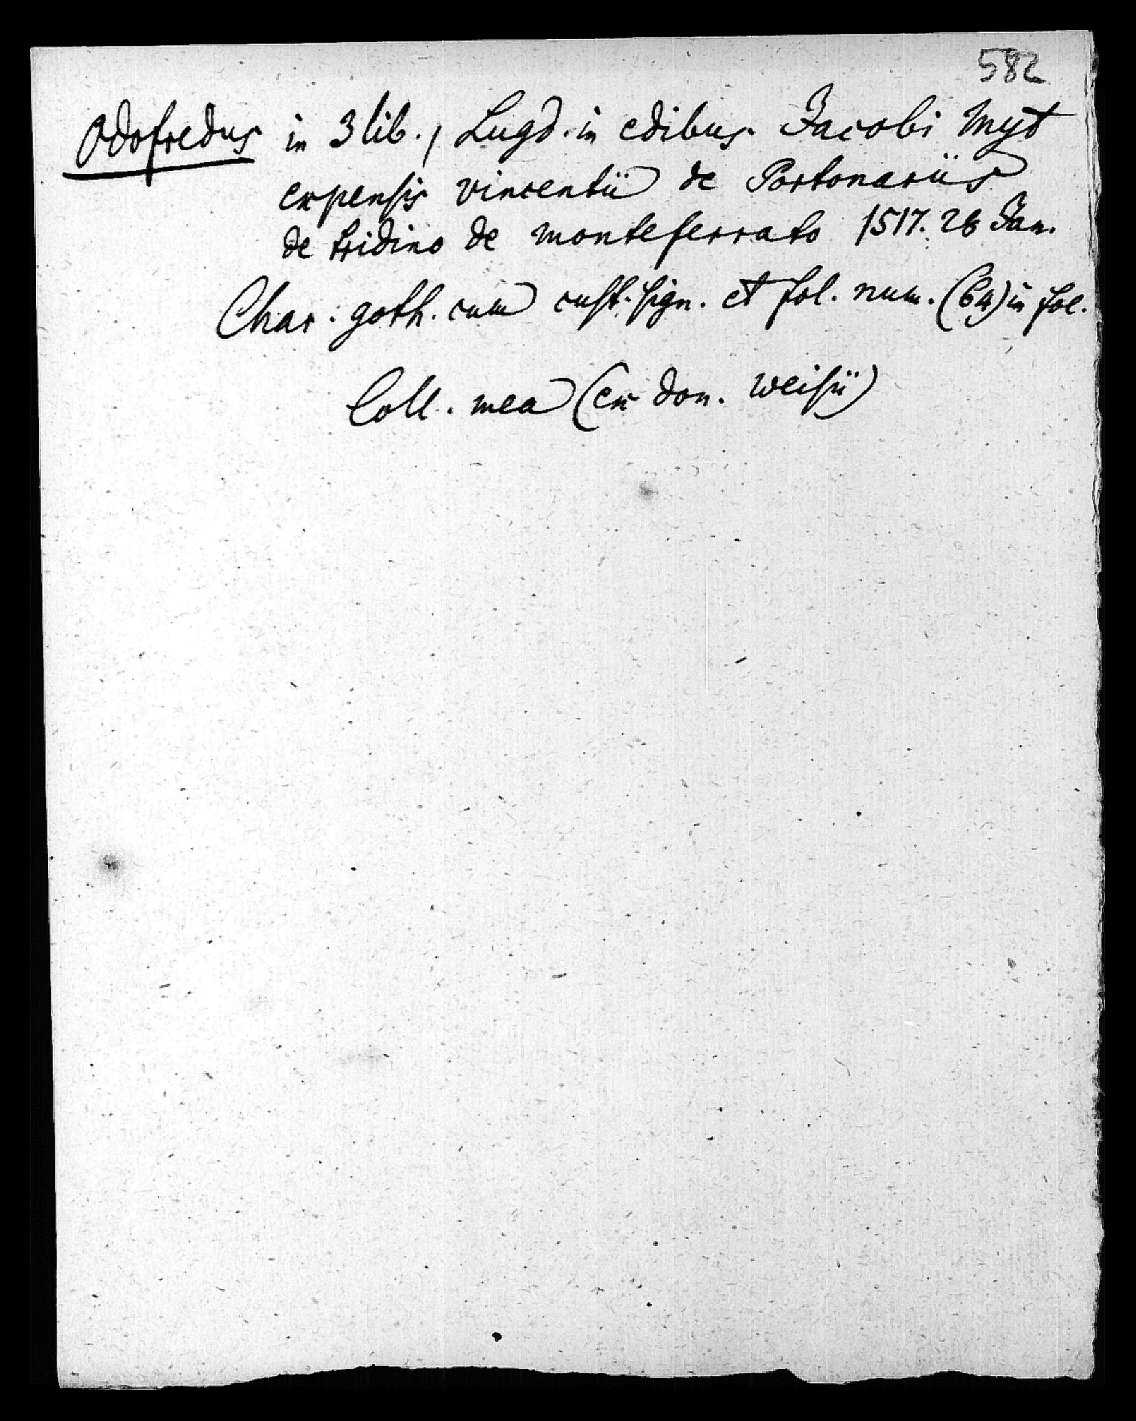 582
Odofredus in 3 lib., Lugd. in edibus Jacobi Myt
expensis vincentii de Portonariis
de tridino de monteferrato 1517. 28 Jan.
Char. goth. cum cust. sign. et fol. num. (64) in fol.
Coll. mea (ex don. Weisii)